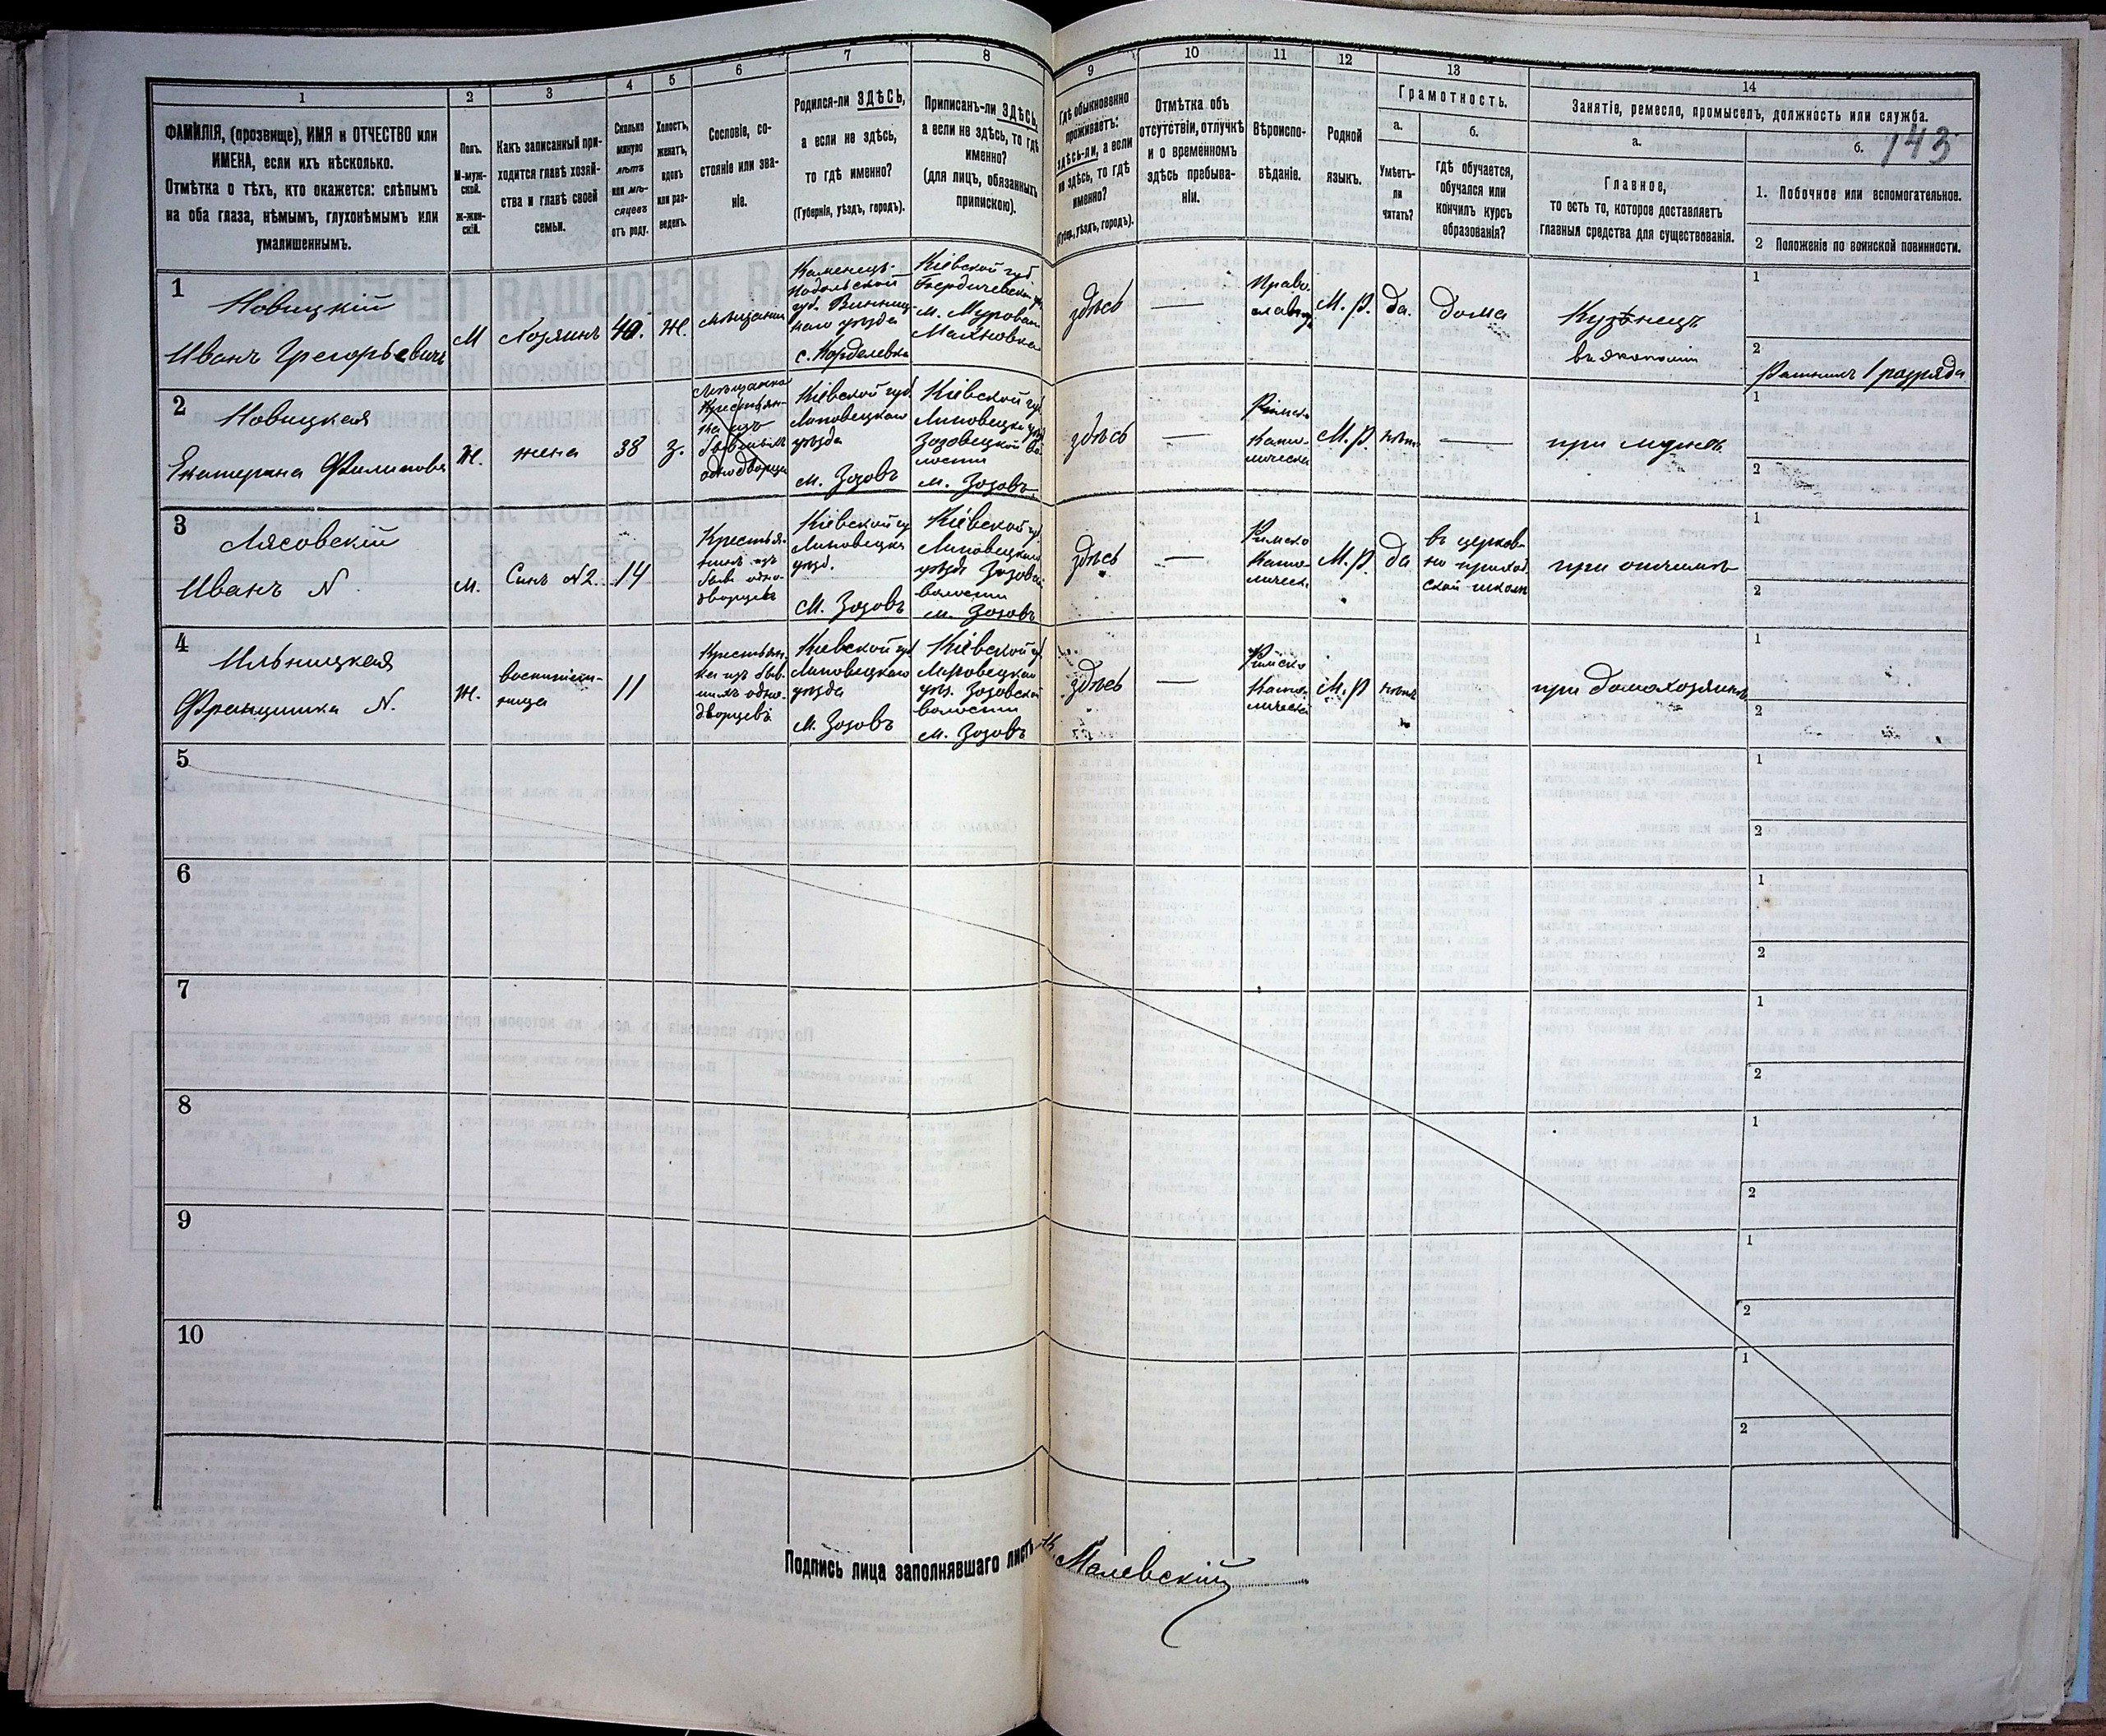 1 2 3 4 5 6 7 8 9 10 11 12 13 14
ФАМИЛІЯ, (прозвище), ИМЯ и ОТЧЕСТВО или
ИМЕНА, если ихъ нѣсколько.
Отмѣтка о тѣхъ, кто окажется: слѣпымъ
на оба глаза, нѣмымъ, глухонѣмымъ или
умалишеннымъ.
Полъ.
М-муж-
ской.
Ж-жен-
скій.
Какъ записанный при-
ходится главѣ хозяй-
ства и главѣ своей
семьи.
Сколько
минуло
лѣтъ
или мѣ-
сяцевъ
отъ роду.
Холостъ,
женатъ,
вдовъ
или раз-
веденъ.
Сословіе, со-
стояніе или зва-
ніе.
Родился-ли ЗДѢСЬ,
а если не здѣсь,
то гдѣ именно?
(Губернія, уѣздъ, городъ).
Приписанъ-ли ЗДѢСЬ,
а если не здѣсь, то гдѣ
именно?
(для лицъ, обязанныхъ
припискою).
Гдѣ обыкновенно
проживаетъ:
здѣсь-ли, а если
не здѣсь, то гдѣ
именно?
(Губер., уѣздъ, городъ).
Отмѣтка объ
отсутствіи, отлучкѣ
и о временномъ
здѣсь пребыва-
ніи.
Вѣроиспо-
вѣданіе.
Родной
языкъ.
Грамотность.
а.
Умѣетъ-
ли
читать?
б.
Гдѣ обучается,
обучался или
кончилъ курсъ
образованія?
Занятіе, ремесло, промыселъ, должность или служба.
а.
Главное,
то есть то, которое доставляетъ
главныя средства для существованія.
б.
143
1. Побочное или вспомогательное.
2 Положеніе по воинской повинности.
1
Новицкій
Иванъ Григорьевичъ
М
Хозяинъ
40.
Ж.
мѣщанин
Каменецъ-
Подольской
губ. Винниц-
каго уѣзда
с. Корделевка
Кіевской губ
Бердичевск
м. Мурован
Махновка
здѣсь
—
Право-
славн
М. Р.
да.
дома
Кузнецъ
въ экономіи
1
2
Ратникъ 1 разряда
2
Новицкая
Екатерина Филипова
Ж.
жена
38
з.
Мѣщанка
Крестьян-
ка изъ
бывшихъ
однодворце
Кіевской губ
Липовецкаго
уѣзда
м. Зозовъ
Кіевской губ
Липовецк
Зозовецкой во
лости
м. Зозовъ
здѣсь
—
Римско
Като-
лическ
М. Р.
нѣтъ
—
при мужѣ
1
2
3
Лясовскій
Иванъ N
М.
Сынъ N2.
14
Крестья-
нинъ изъ
бывш одно-
дворцевъ
Кіевской гу
Липовецка
уѣзд.
М. Зозовъ
Кіевской гу
Липовецкаго
уѣзда Зозовск
волости
м. Зозовъ
здѣсь
—
Римско
Като-
лическ
М. Р.
да
въ церков-
но приход
ской школѣ
при отчимѣ
1
2
4
Ильницкая
Францишка N.
Ж.
воспитан-
ница
11
Крестьян-
ка изъ быв-
шихъ одно-
дворцевъ
Кіевской губ
Липовецкаго
уѣзда
м. Зозовъ
Кіевской г
Липовецкаго
уѣз. Зозовской
волости
м. Зозовъ
здѣсь
—
Римско
Като-
лическ
М. Р
нѣтъ
при домохозяинѣ
1
2
5
1
2
6
1
2
7
1
2
8
1
2
9
1
2
10
1
2
Подпись лица заполнявшаго листъ
Малевскій